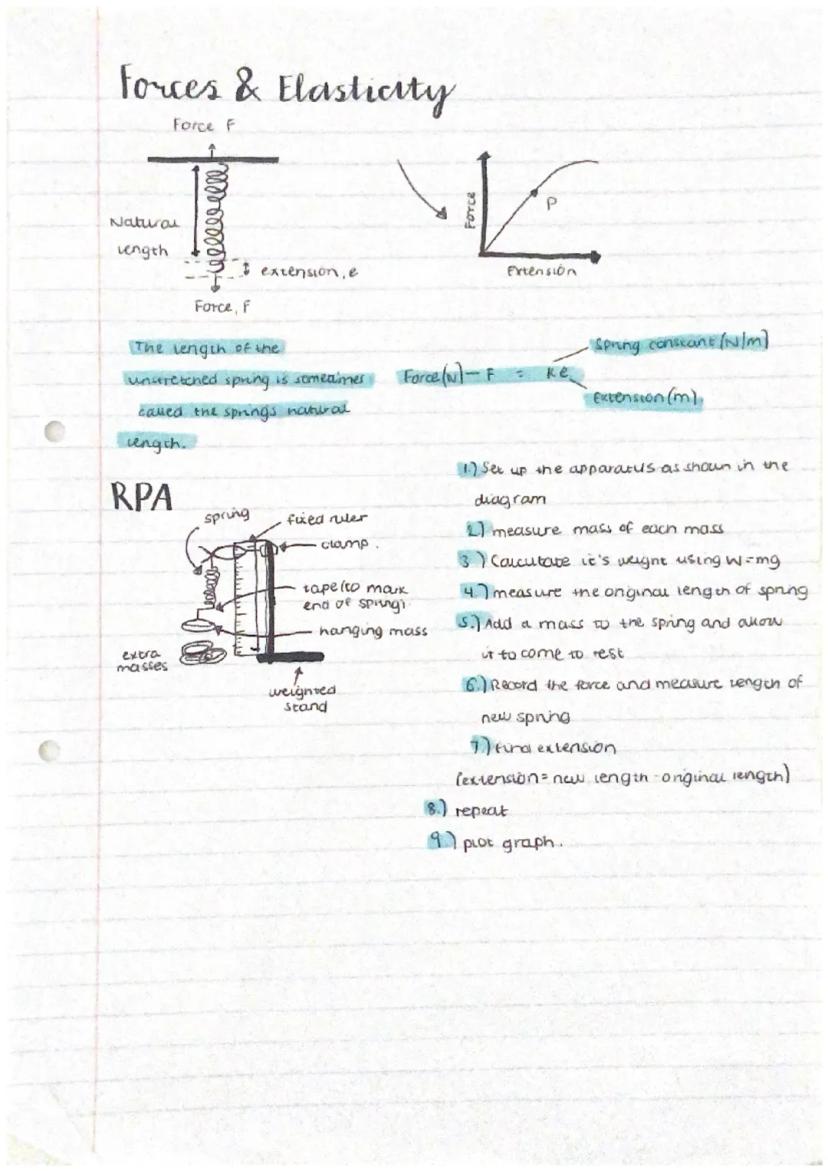 Forces & Elasticity
Force F
Natural
length
extension, e
Force, F
Force
P
Extension
The length of the
unstretched spring is sometimes
called the springs natural
length.
Spring constant (N/m)
Force (N) — F = ke
Extension (m)
RPA
spring
fixed ruler
clamp.
tape (to mark
end of spring)
hanging mass
extra
masses
weighted
stand
1.) Set up the apparatus as shown in the
diagram
2.) measure mass of each mass
3.) Calculate it's weight using W=mg
4.) measure the original length of spring
5.) Add a mass to the spring and allow
it to come to rest
6.) Record the force and measure length of
new spring
7.) Final extension
(extension = new length - original length)
8.) repeat
9.) plot graph.